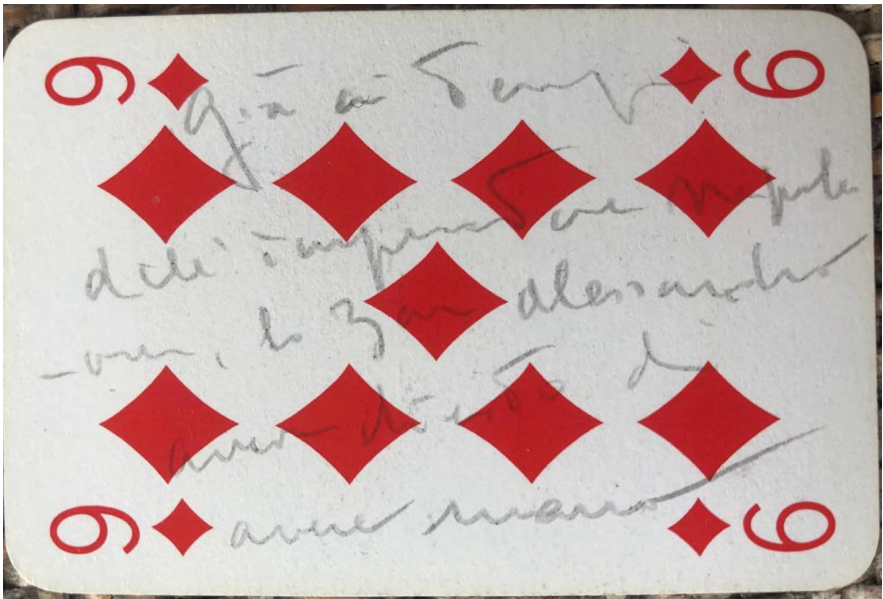 9 9
Già ai Tempi
dell'imperatore Napole
-one, lo Zar Alessandro
aveva di
avere
9 9